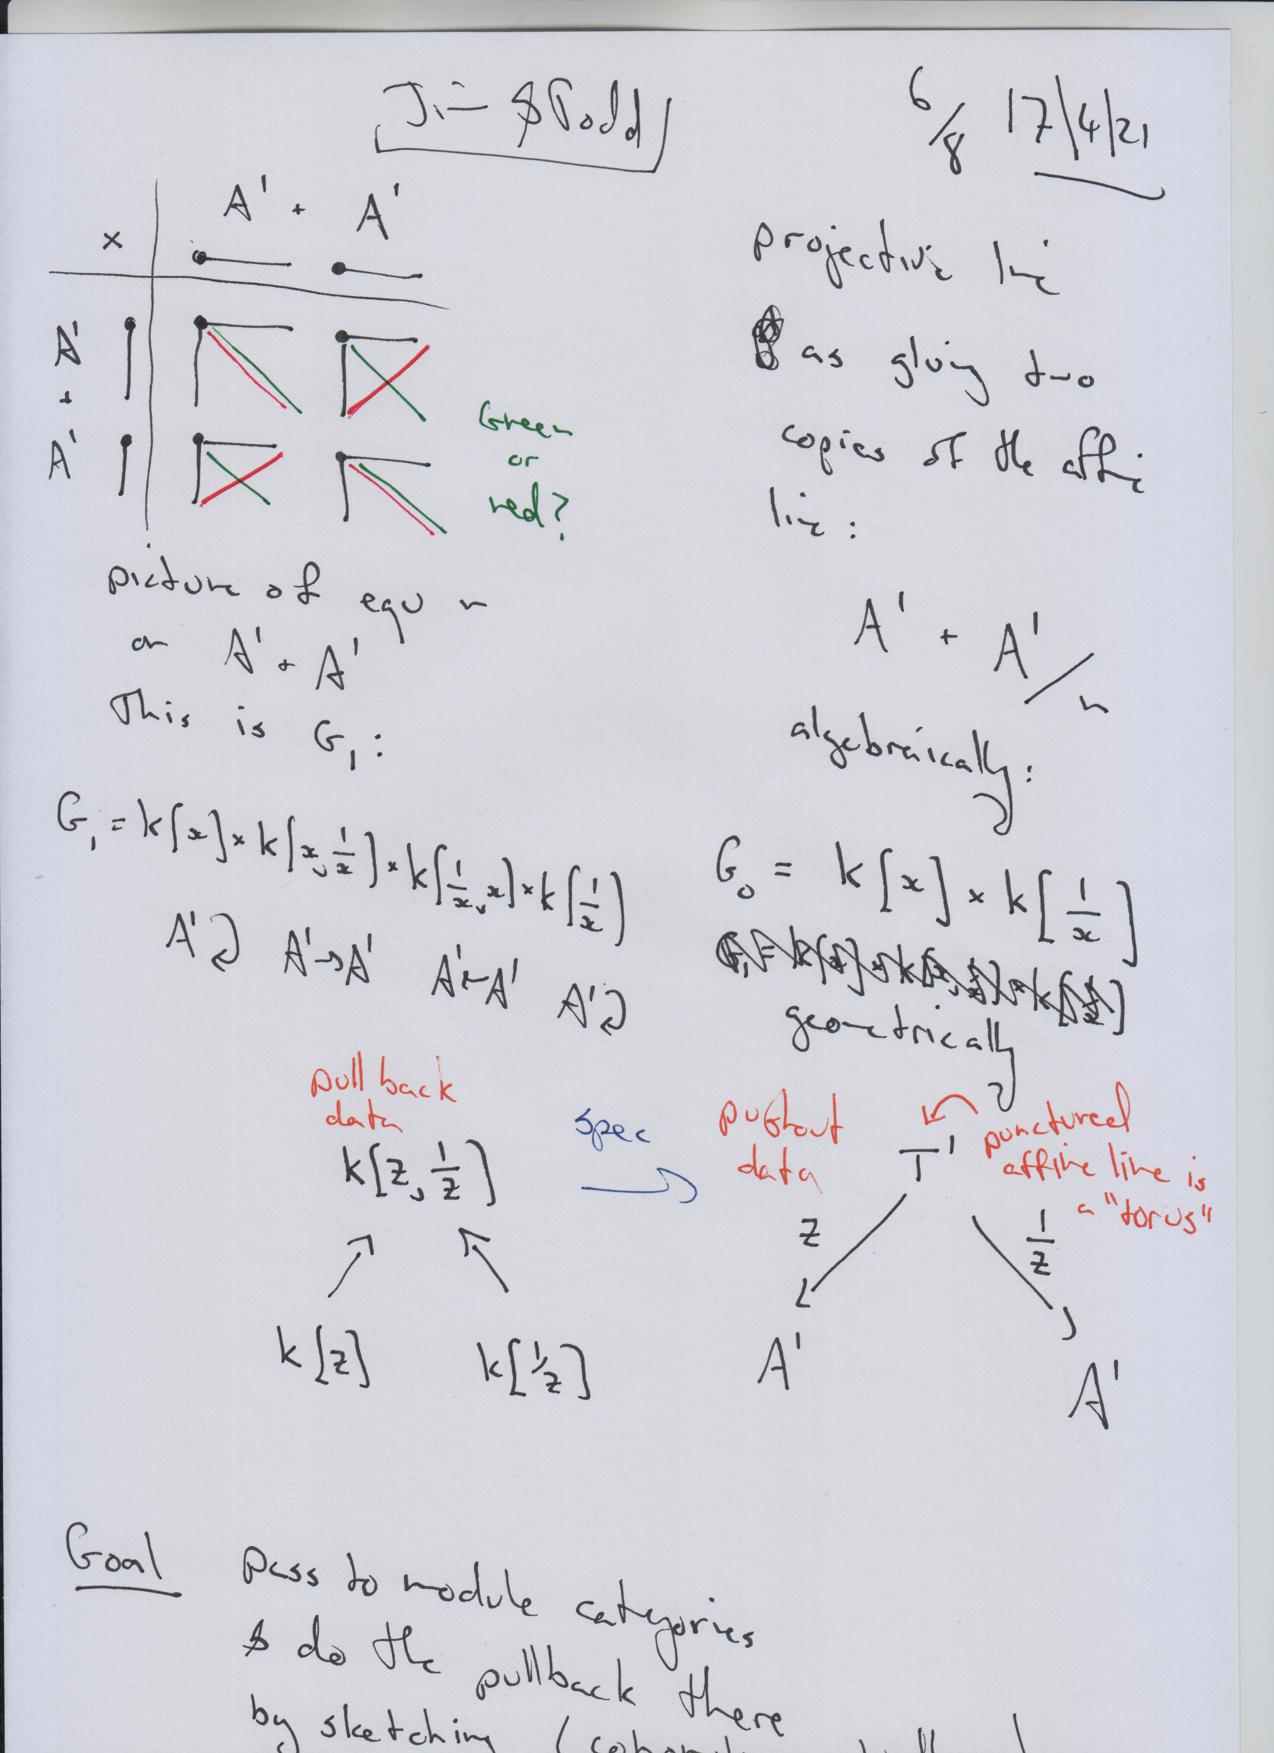 Jim & Todd
6/8 17/4/21
× A¹ + A¹
A¹
+
A¹
Green
or
red?
picture of equ ~
on A¹ + A¹
This is G₁:
G₁ = k[x] × k[x, 1/x] × k[1/x, x] × k[1/x]
A¹ A¹→A¹ A¹←A¹ A¹
projective line
as gluing two
copies of the affine
line:
A¹ + A¹/~
algebraically:
G₀ = k[x] × k[1/x]
geometrically
pullback
data
k[z, 1/z]
k[z] k[1/z]
spec
pushout
data
T¹
punctured
affine line is
a "torus"
z 1/z
A¹ A¹
Goal pass to module categories
& do the pullback there
by sketching